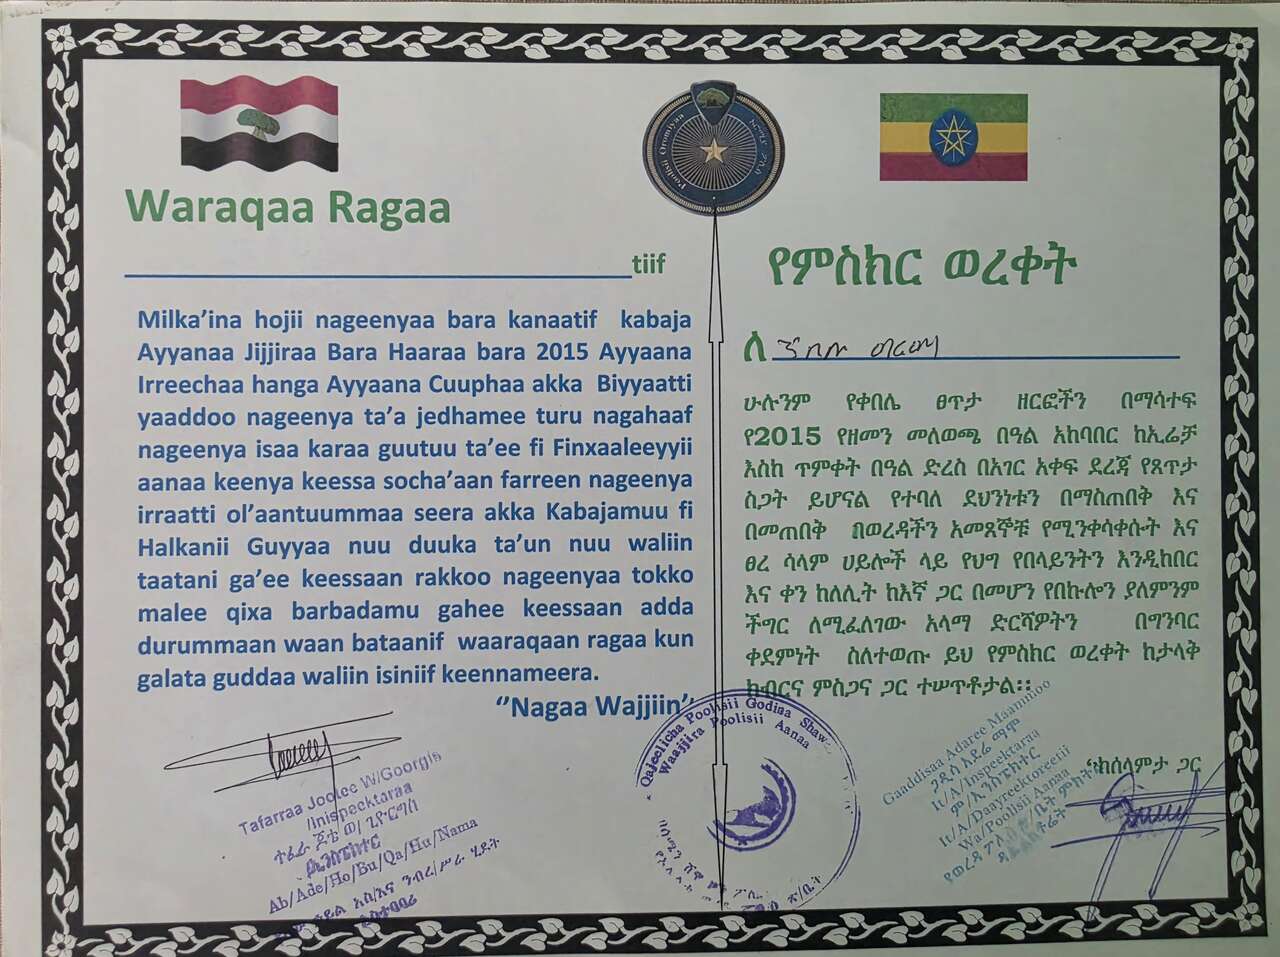 Poolisii Oromiyaa
ኦሮሚያ ፖሊስ
Waraqaa Ragaa
tiif
Milka’ina hojii nageenyaa bara kanaatif kabaja
Ayyanaa Jijjiraa Bara Haaraa bara 2015 Ayyaana
Irreechaa hanga Ayyaana Cuuphaa akka Biyyaatti
yaaddoo nageenya ta’a jedhamee turu nagahaaf
nageenya isaa karaa guutuu ta’ee fi Finxaaleeyyii
aanaa keenya keessa socha’aan farreen nageenya
irraatti ol’aantuummaa seera akka Kabajamuu fi
Halkanii Guyyaa nuu duuka ta’un nuu waliin
taatani ga’ee keessaan rakkoo nageenyaa tokko
malee qixa barbadamu gahee keessaan adda
durummaan waan bataanif waaraqaan ragaa kun
galata guddaa waliin isiniif keennameera.
‘‘Nagaa Wajjiin’’
የምስክር ወረቀት
ለ
ሁሉንም የቀበሌ ፀጥታ ዘርፎችን በማሳተፍ
የ2015 የዘመን መለወጫ በዓል አከባበር ከኢሬቻ
እስከ ጥምቀት በዓል ድረስ በአገር አቀፍ ደረጃ የጸጥታ
ስጋት ይሆናል የተባለ ደህንነቱን በማስጠበቅ እና
በመጠበቅ በወረዳችን አመጸኞቹ የሚንቀሳቀሱት እና
ፀረ ሳላም ሀይሎች ላይ የህግ የበላይንትን እንዲከበር
እና ቀን ከለሊት ከእኛ ጋር በመሆን የበኩሎን ያለምንም
ችግር ለሚፈለገው አላማ ድርሻዎትን በግንባር
ቀደምነት ስለተወጡ ይህ የምስክር ወረቀት ከታላቅ
ክብርና ምስጋና ጋር ተሠጥቶታል፡፡
‘‘ከሰላምታ ጋር
Tafarraa Jootee W/Goorgis
/Inispecktaraa
ተፈራ ጆቴ ወ/ ጊዮርጊስ
Ab/Ade/Ho/Bu/Qa/Hu/Nama
Qajeelicha Poolisii Godiaa Shaw
Waajjira Poolisii Aanaa
Gaaddisaa Adaree Maammoo
ጋዲሳ አደሬ ማሞ
It/A/Inspeektaraa
ም/ኢንስፔክተር
It/A/Daayreektoreenii
Wa/Poolisii Aanaa